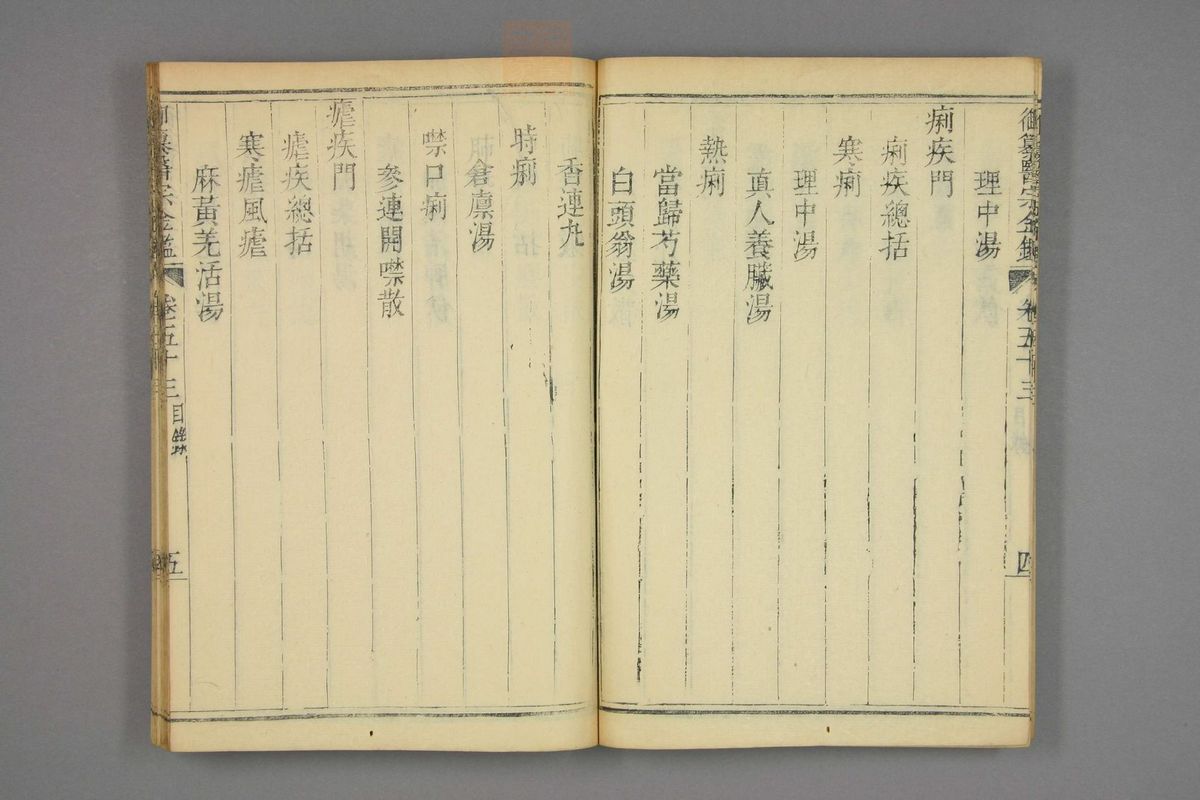 御纂醫宗金鑑 卷五十三 目錄 四
理中湯
痢疾門
痢疾總括
寒痢
理中湯
真人養臟湯
熱痢
當歸芍藥湯
白頭翁湯
香連丸
時痢
倉廩湯
噤口痢
參連開噤散
瘧疾門
瘧疾總括
寒瘧風瘧
麻黃羌活湯
御纂醫宗金鑑 卷五十三 目錄 五